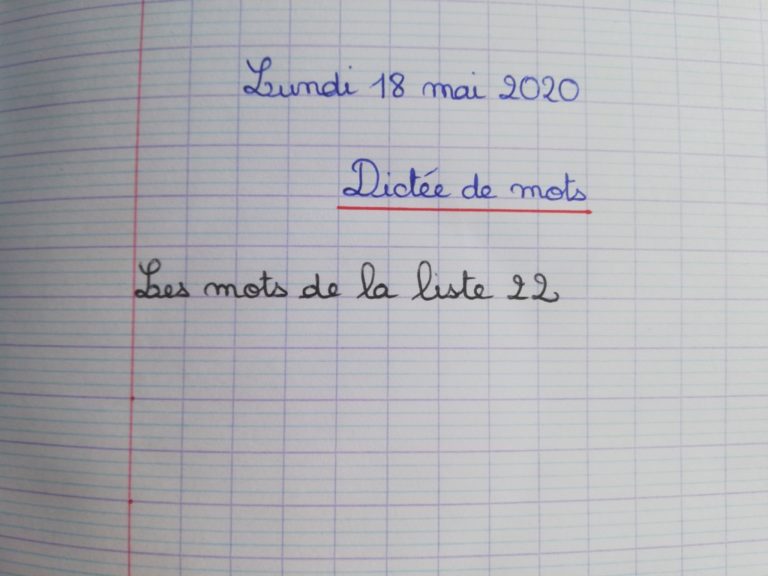 Lundi 18 mai 2020
Dictée de mots
Les mots de la liste 22